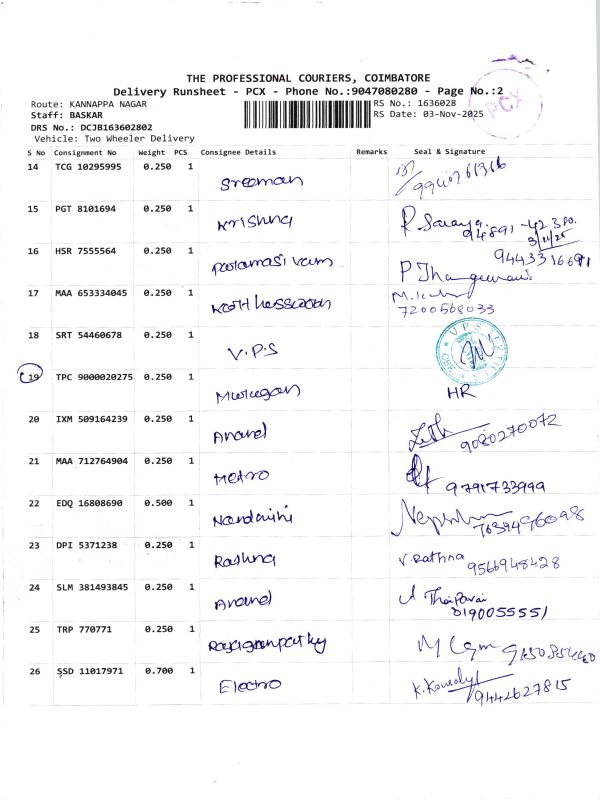 THE PROFESSIONAL COURIERS, COIMBATORE
Delivery Runsheet - PCX - Phone No.:9047080280 - Page No.:2
PCX
Route: KANNAPPA NAGAR
RS No.: 1636028
Staff: BASKAR
RS Date: 03-Nov-2025
DRS No.: DCJB163602802
Vehicle: Two Wheeler Delivery
S No Consignment No Weight PCS Consignee Details Remarks Seal & Signature
14 TCG 10295995 0.250 1 Sreeman
15 PGT 8101694 0.250 1 Krishna R. Saranya
94891-42300
3/11/25
16 HSR 7555564 0.250 1 Paramasivam 9443316691
17 MAA 653334045 0.250 1 7200568033
18 SRT 54460678 0.250 1 V.P.S
19 TPC 9000020275 0.250 1 Murugan HR
20 IXM 509164239 0.250 1 Anand 9080270072
21 MAA 712764904 0.250 1 Metro 9791733999
22 EDQ 16808690 0.500 1 7639496098
23 DPI 5371238 0.250 1 Rathna V. Rathna 9566948428
24 SLM 381493845 0.250 1 Anand
25 TRP 770771 0.250 1
26 SSD 11017971 0.700 1 Electro 9442627815